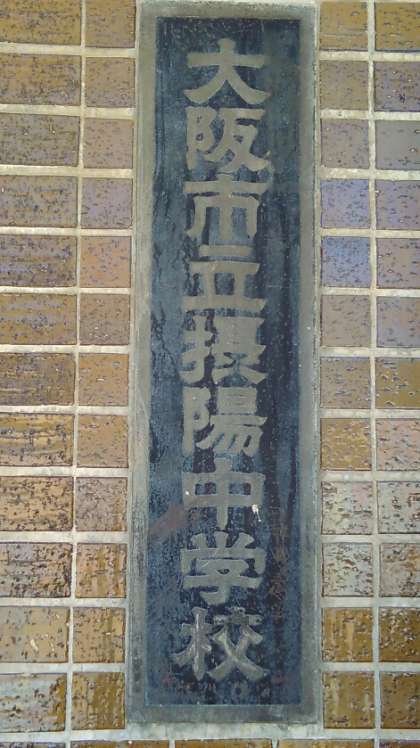 大阪市立摂陽中学校